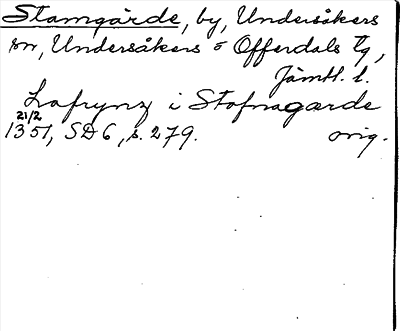 Stamgärde, by, Undersåkers
sn, Undersåkers o Offerdals tg,
Jämtl. l.
Lafrynz i Stafnagarde
21/2
1351, SD 6, s. 279. orig.